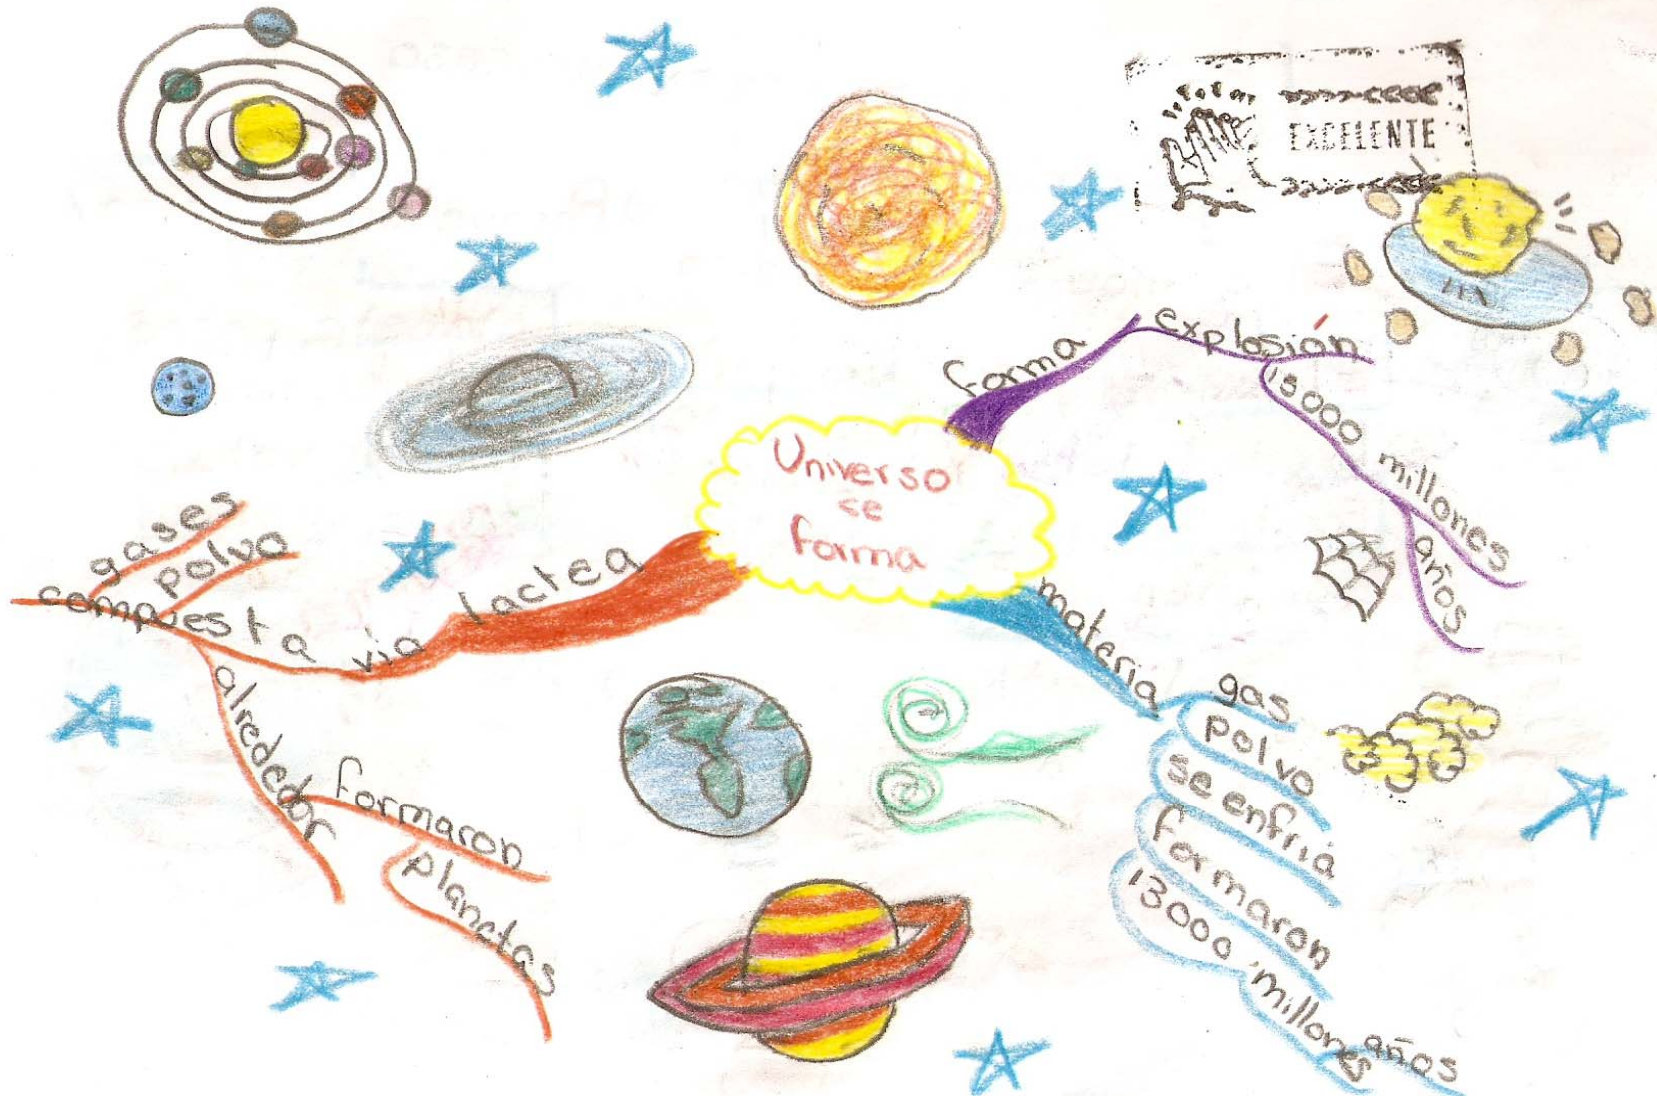 EXCELENTE
Universo
ce
forma
forma
explosión
15000 millones
años
materia
gas
polvo
se enfriá
formaron
13000 millones
años
via lactea
compuesta
gases
polvo
alrededor
formaron
planetas